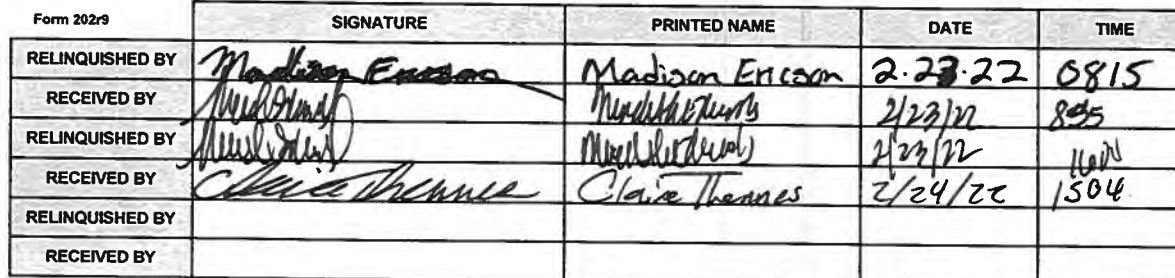 Form 202r9 SIGNATURE PRINTED NAME DATE TIME
RELINQUISHED BY Madison Ericson Madison Ericson 2.23.22 0815
RECEIVED BY 2/23/22
RELINQUISHED BY 2/23/22
RECEIVED BY Claire Thennes Claire Thennes 2/24/22 1504
RELINQUISHED BY
RECEIVED BY